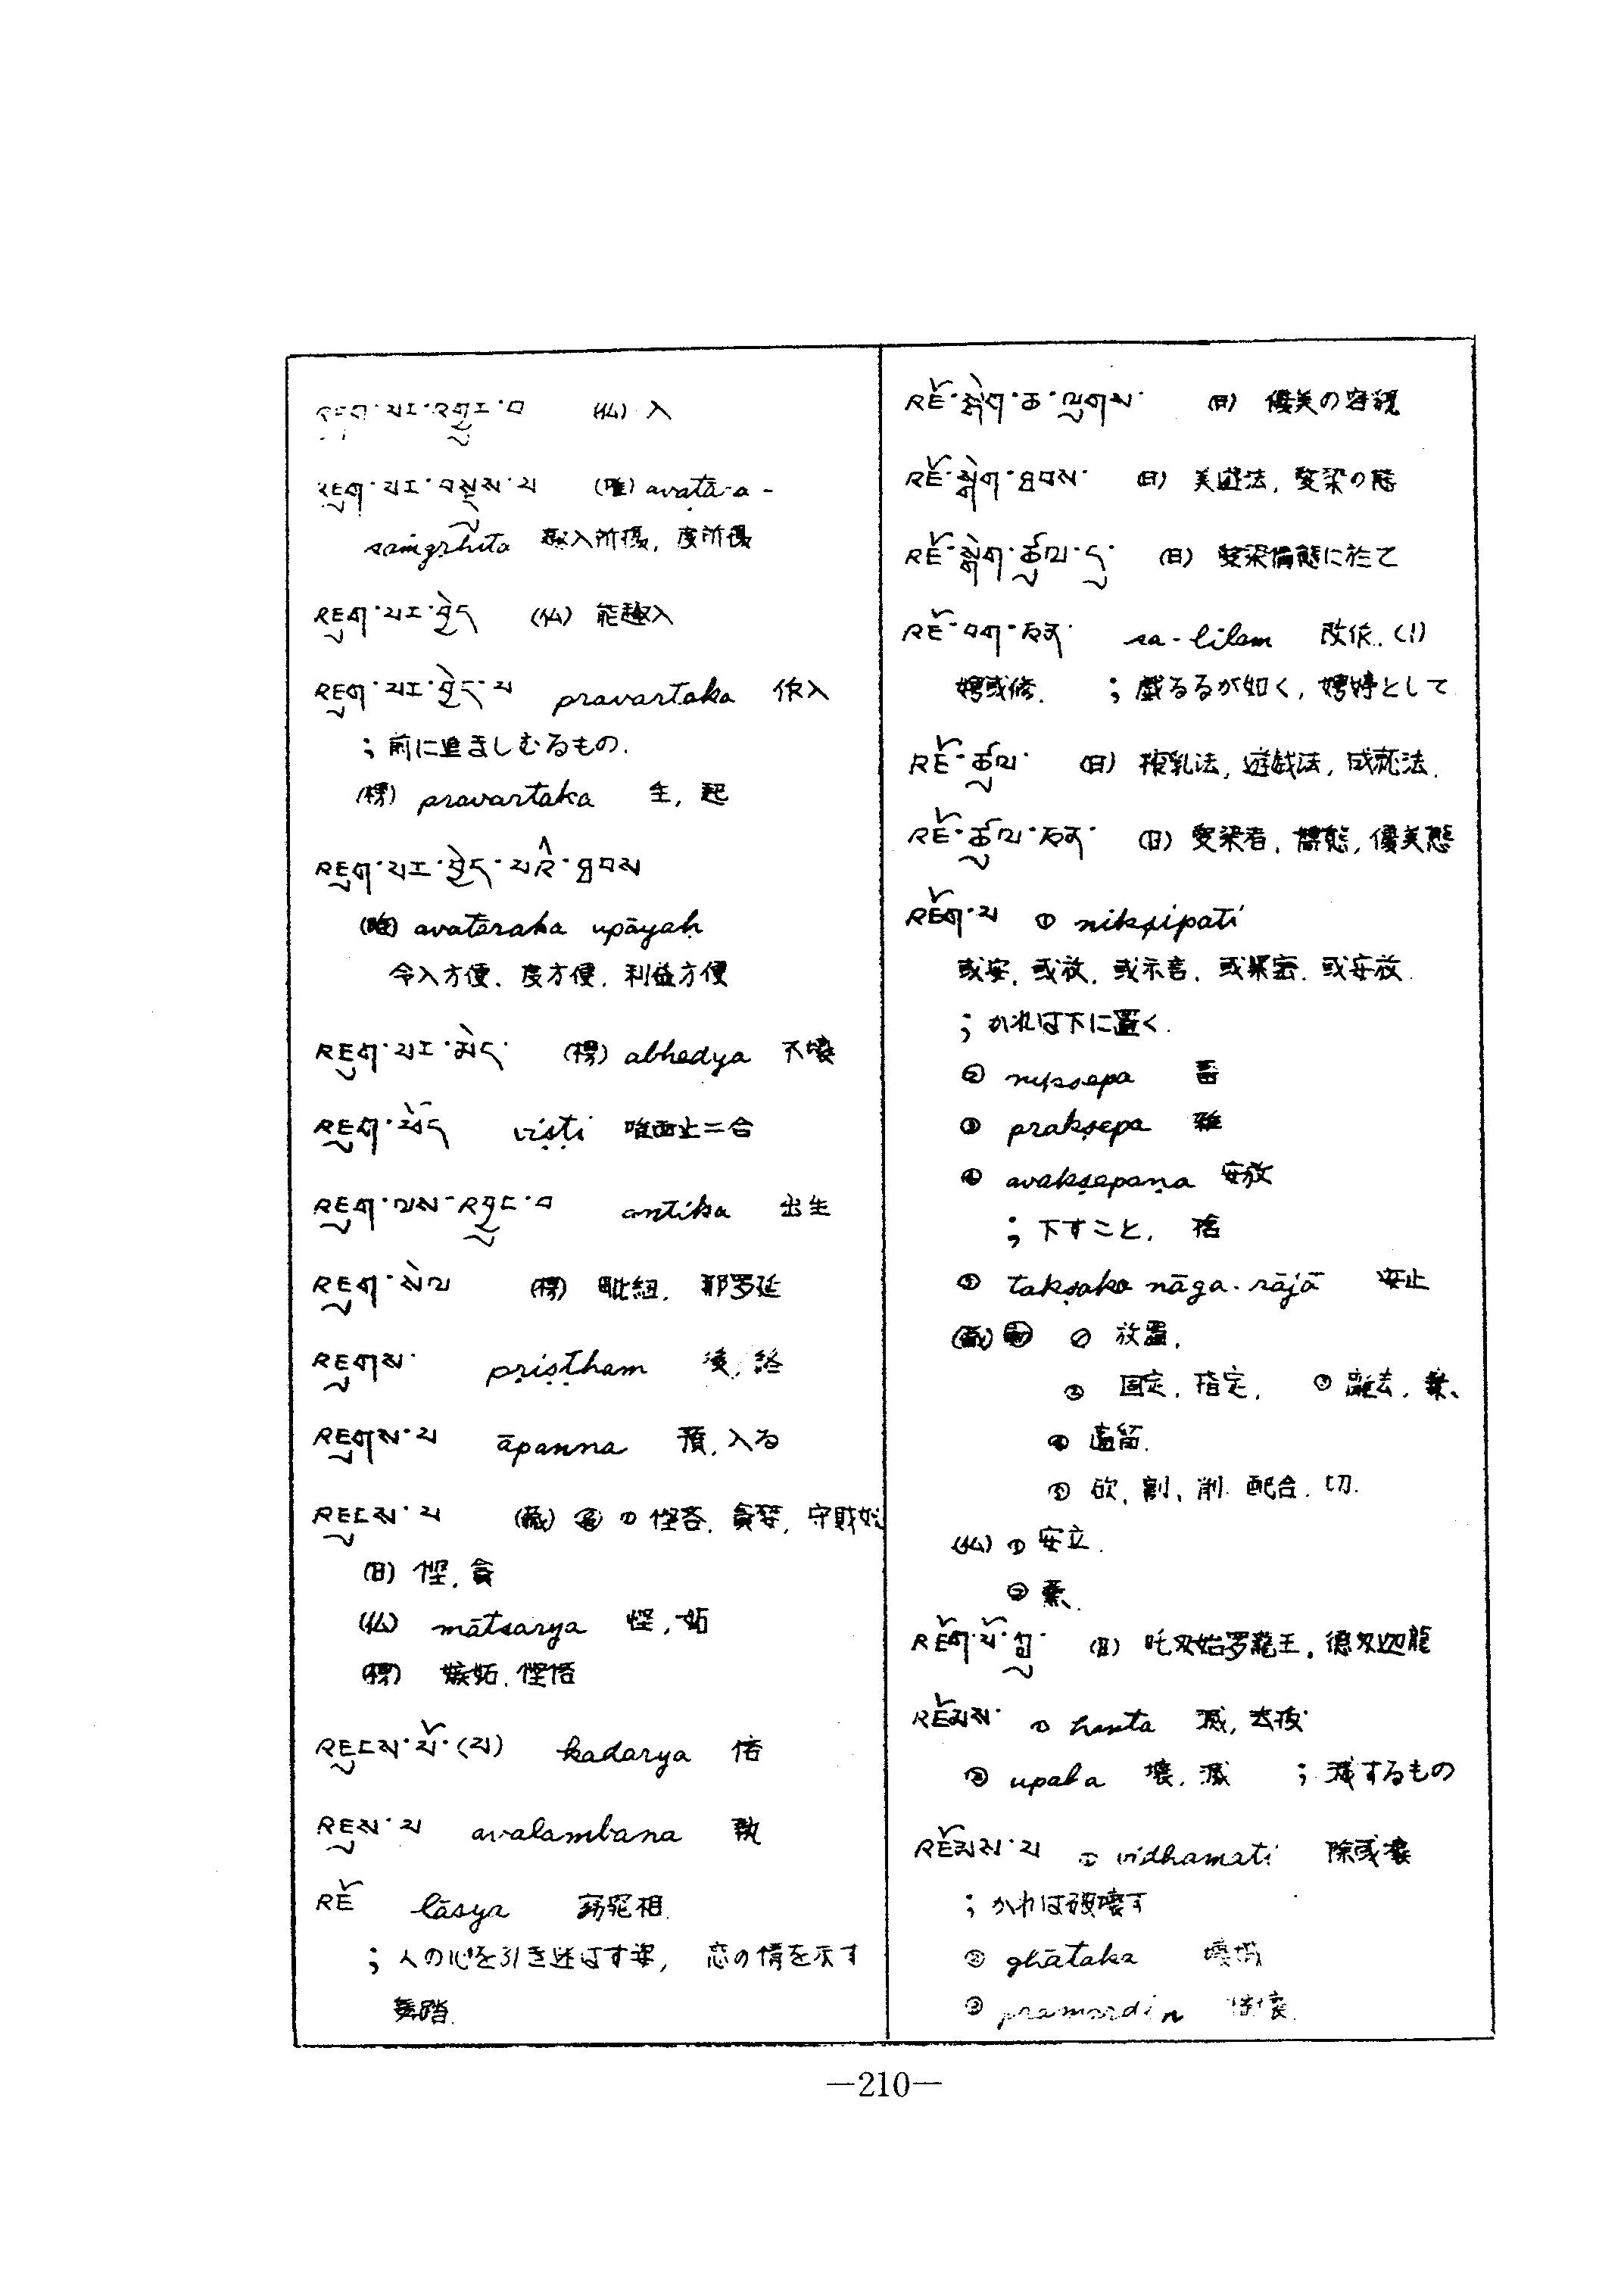 འཇུག་པར་འགྱུར་བ (仏) 入
འཇུག་པར་བསྡུས་པ (唯) avatāra-
saṁgṛhīta 趣入所攝, 度所攝
འཇུག་པར་བྱེད (仏) 能趣入
འཇུག་པར་བྱེད་པ pravartaka 作入
; 前に進ましむるもの.
(楞) pravartaka 生, 起
འཇུག་པར་བྱེད་པའི་ཐབས
(唯) avatāraka upāyaḥ
令入方便, 度方便, 利益方便
འཇུག་པར་མེད་ (楞) abhedya 不壞
འཇུག་ viṣṭi 二合
འཇུག་ལས་འབྱུང་བ antika 出生
འཇུག་སེལ (楞) 毗紐, 那罗延
འཇུགས་ pṛiṣṭham 後,
འཇུགས་པ āpanna 預, 入る
འཇུངས་པ (藏) ① 慳吝, 貪婪, 守財奴
(日) 慳, 貪
(仏) mātsarya 慳, 妬
(楞) 嫉妬, 慳悋
འཇུངས་པོ་(པ) kadarya 悋
འཇུས་པ avalambana 執
འཇོ lāsya 窈窕相.
; 人の心を引き迷はす姿, 恋の情を示す
舞踏.
འཇོ་སྒེག་ཆ་ལུགས་ (日) 優美の容貌
འཇོ་སྒེག་ཐབས་ (日) 美遊法, 愛染の態
འཇོ་སྒེག་ཚུལ་དུ་ (日) 愛染情態に於て
འཇོ་བག་ཅན་ sa-lilam 改作. (1)
娉或修. ; 戯るるが如く, 娉婷として
འཇོ་ཚུལ་ (日) 搾乳法, 遊戯法, 成就法.
འཇོ་ཚུལ་ཅན་ (日) 愛染者, 嬌態, 優美態
འཇོག་པ ① nikṣipati
或安, 或放, 或示言, 或累宻. 或安放.
; かれは下に置く.
② nikṣepa 畜
③ prakṣepa 雜
④ avakṣepaṇa 安放
; 下すこと, 捨
⑤ takṣako nāga-rājā 安止
(藏) ① 放置,
② 固定, 指定, ③ 離去, 棄、
④ 遺留.
⑤ 砍, 割, 削. 配合. 切.
(仏) ① 安立.
② 棄、
འཇོག་པོ་ཀླུ་ (日) 吒叉始罗龍王, 德叉迦龍
འཇོམས་ ① hanta 滅, 去
② upaha 壞, 滅 ; 滅するもの
འཇོམས་པ ① vidhamati 除或壞
; かれは破壊す
② ghātaka 壞
③ pramardin 壞.
—210—